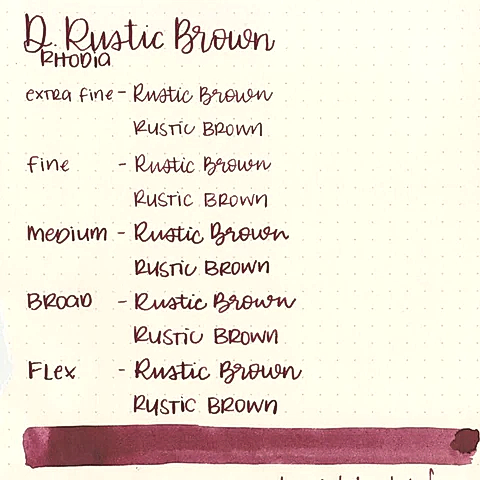 D. Rustic Brown
RHODIA
extra fine - Rustic Brown
RUSTIC BROWN
fine - Rustic Brown
RUSTIC BROWN
medium - Rustic Brown
RUSTIC BROWN
BROAD - Rustic Brown
RUSTIC BROWN
FLex - Rustic Brown
RUSTIC BROWN